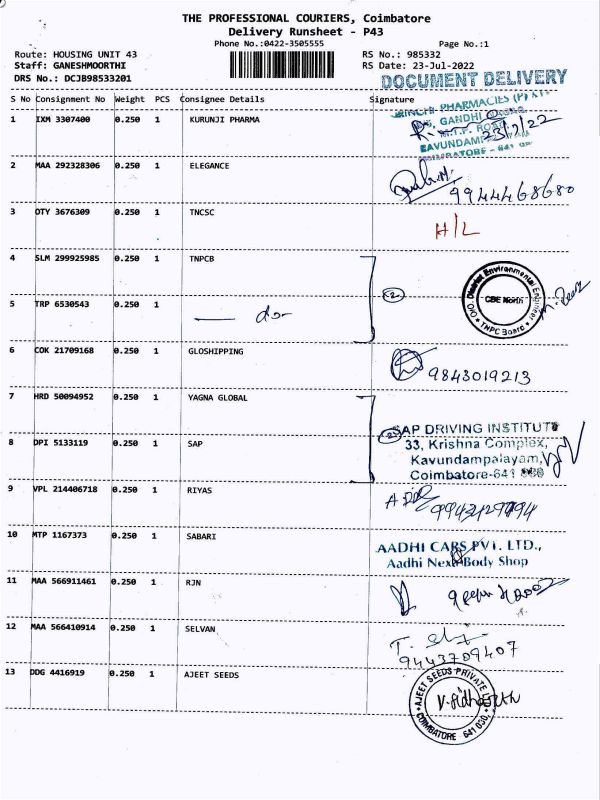 THE PROFESSIONAL COURIERS, Coimbatore
Delivery Runsheet - P43
Phone No.:0422-3505555
Page No.:1
Route: HOUSING UNIT 43
RS No.: 985332
Staff: GANESHMOORTHI
RS Date: 23-Jul-2022
DRS No.: DCJB98533201
DOCUMENT DELIVERY
S No Consignment No Weight PCS Consignee Details Signature
1 IXM 3307400 0.250 1 KURUNJI PHARMA
PHARMACIES (P)
GANDHI
23/7/22
2 MAA 292328306 0.250 1 ELEGANCE
9944468680
3 OTY 3676309 0.250 1 TNCSC
H/L
4 SLM 299925985 0.250 1 TNPCB
O/O. District Environmental Engineer
CBE North
TNPC Board
5 TRP 6530543 0.250 1 — do-
6 COK 21709168 0.250 1 GLOSHIPPING
9843019213
7 HRD 50094952 0.250 1 YAGNA GLOBAL
SAP DRIVING INSTITUTE
8 DPI 5133119 0.250 1 SAP
33, Krishna Complex,
Kavundampalayam,
Coimbatore-641
9 VPL 214406718 0.250 1 RIYAS
10 MTP 1167373 0.250 1 SABARI
AADHI CARS PVT. LTD.,
Aadhi Nexa Body Shop
11 MAA 566911461 0.250 1 RJN
12 MAA 566410914 0.250 1 SELVAN
9443709407
13 DDG 4416919 0.250 1 AJEET SEEDS
AJEET SEEDS PRIVATE
COIMBATORE 641 030